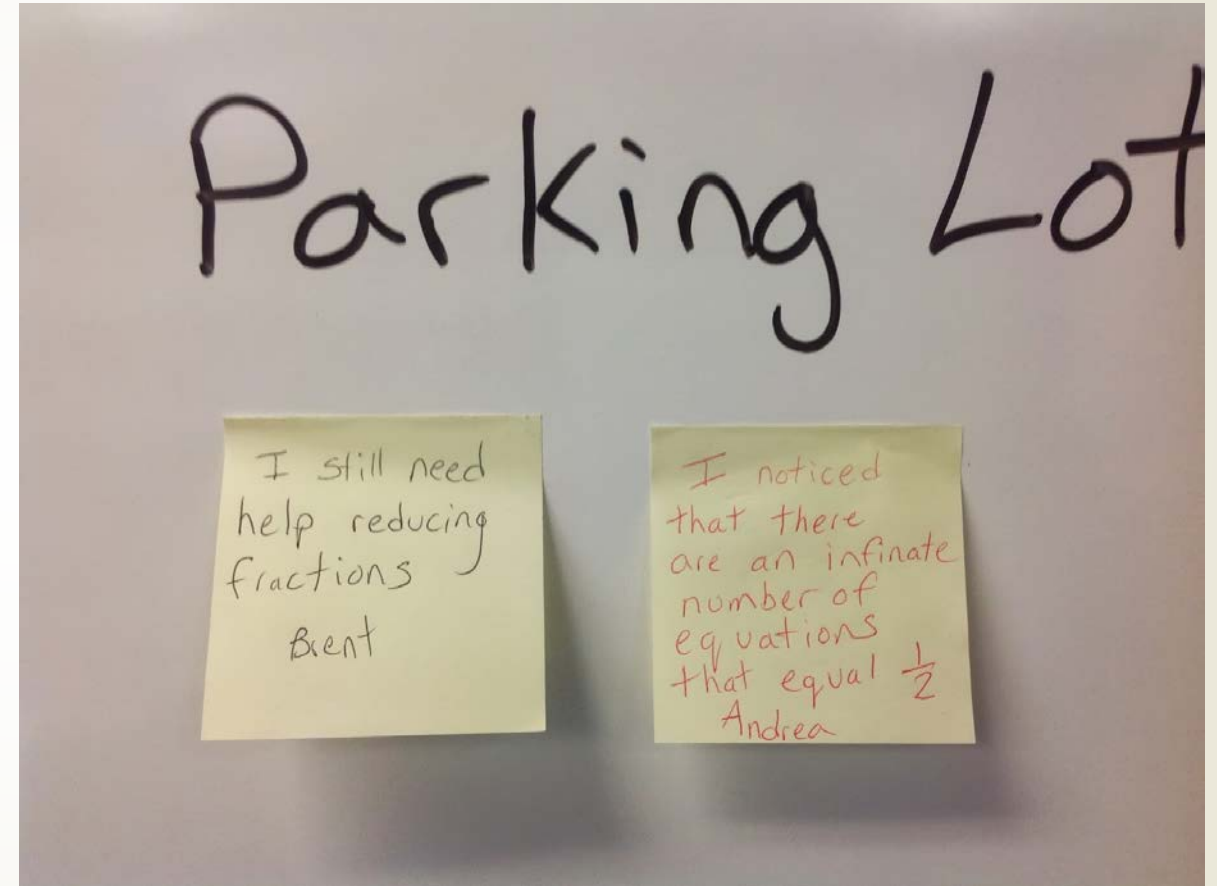 Parking Lot
I still need
help reducing
fractions
Brent
I noticed
that there
are an infinate
number of
equations
that equal 1/2
Andrea